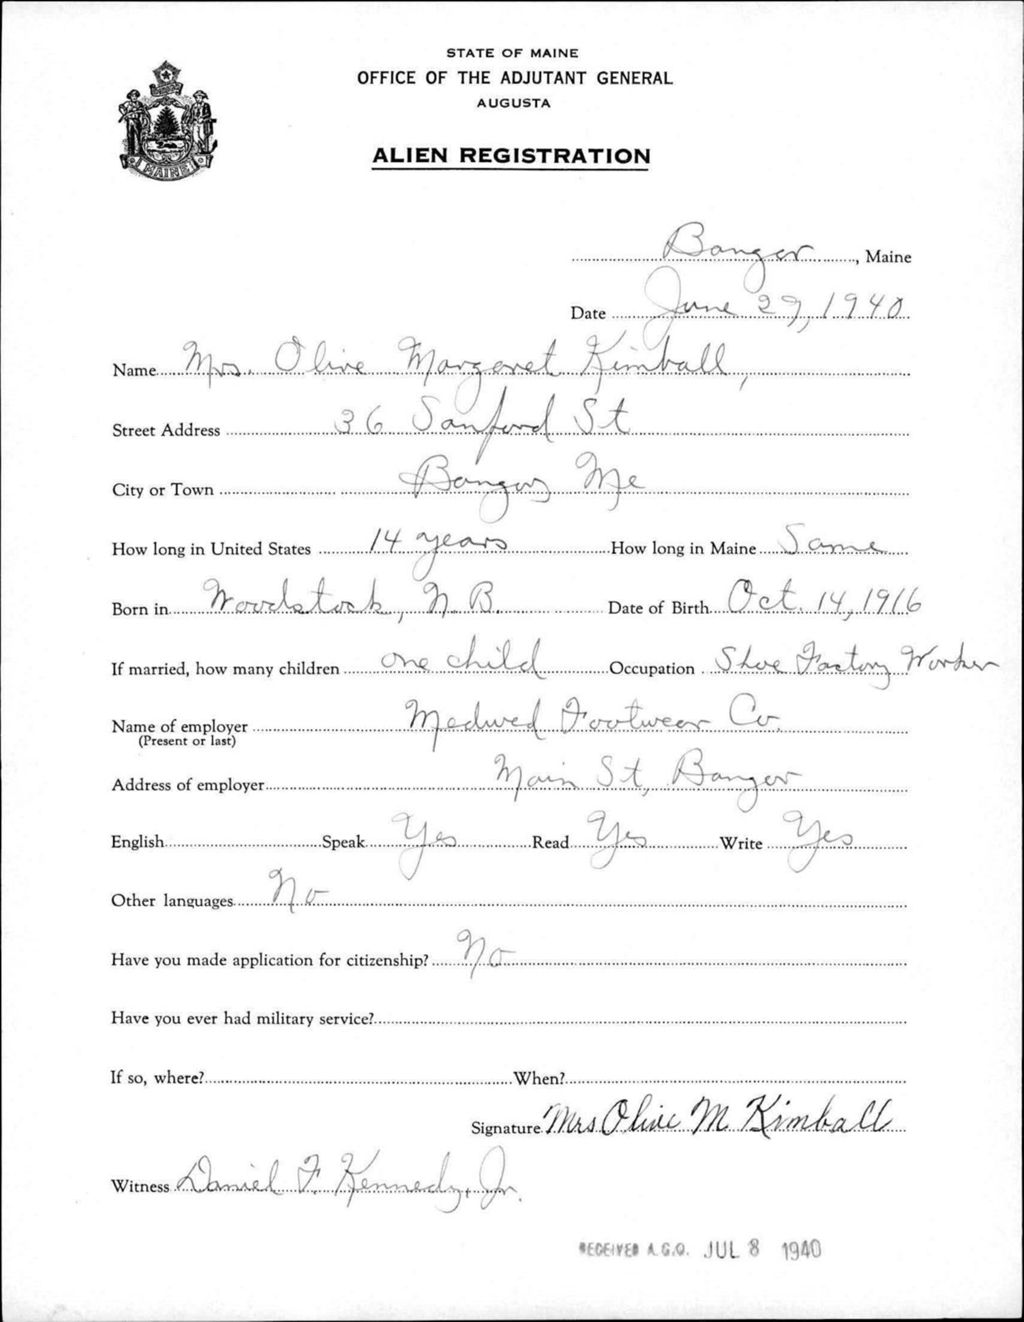 STATE OF MAINE
OFFICE OF THE ADJUTANT GENERAL
AUGUSTA
ALIEN REGISTRATION
MAINE
Bangor, Maine
Date June 29, 1940
Name Mrs. Olive Margaret Kimball,
Street Address 36 Sanford St
City or Town Bangor, Me
How long in United States 14 years How long in Maine Same
Born in Woodstock, N.B. Date of Birth Oct. 14, 1916
If married, how many children one child Occupation Shoe Factory Worker
Name of employer Medwed Footwear Co.
(Present or last)
Address of employer Main St, Bangor
English Speak Yes Read Yes Write Yes
Other languages No
Have you made application for citizenship? No
Have you ever had military service?
If so, where? When?
Signature Mrs Olive M. Kimball
Witness Daniel F. Kennedy, Jr.
RECEIVED A.G.O. JUL 8 1940